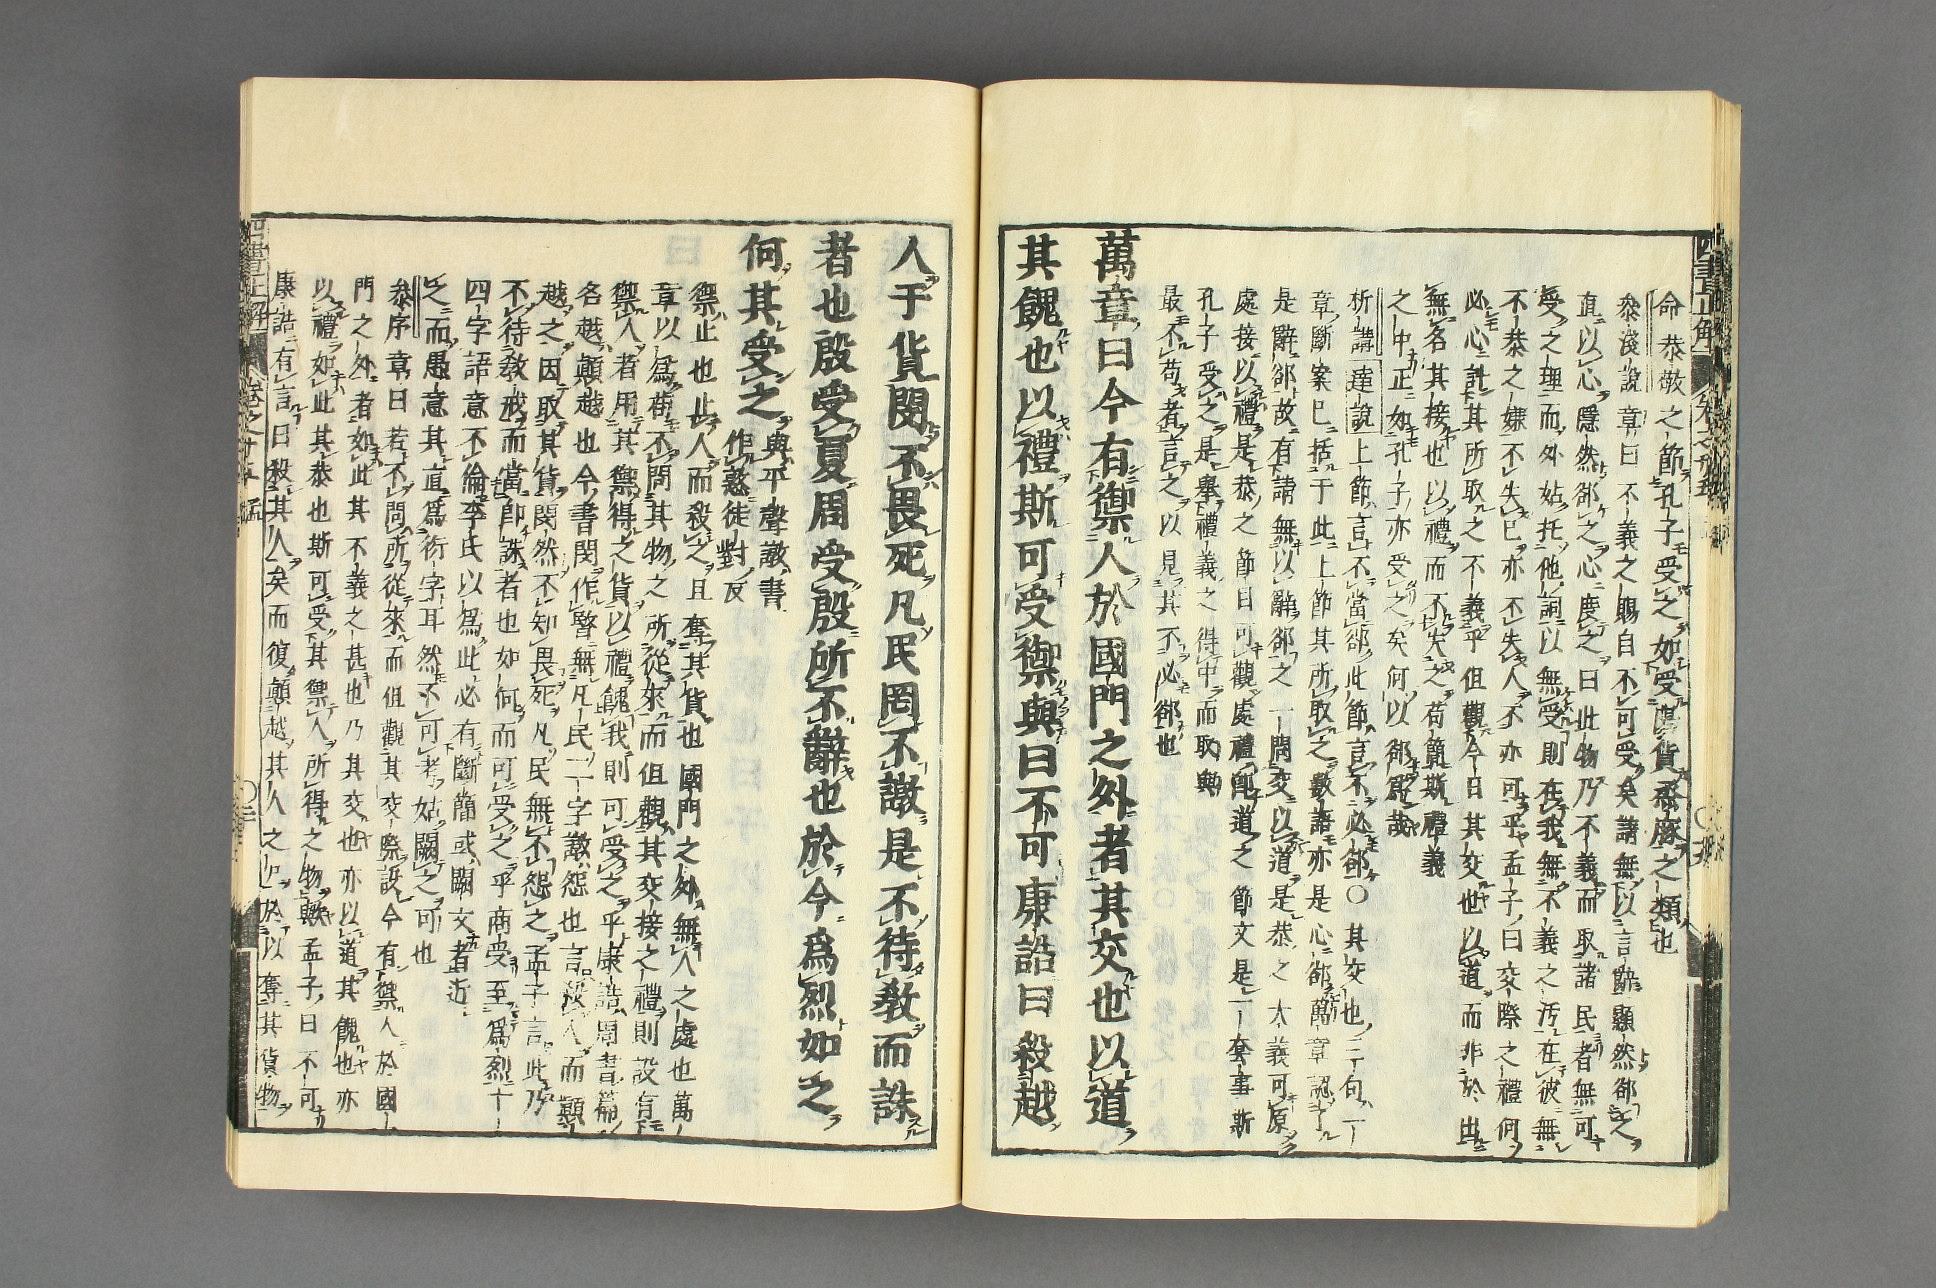 命恭敬之節孔子受之如受陽貨烝豚之類也
叅淺說章曰不義之賜自不可受矣請無以言辭顯然郤之
直以心隱然郤之心度之曰此物乃不義而取諸民者無可
受之理而外姑托他詞以無受則在我無不義之汚在彼無
不恭之嫌不失已亦不失人不亦可乎孟子曰交際之禮何
必心計其所取之不義乎但觀今日其交也以道而非於出
無名其接也以禮而不失之苟簡斯禮義
之中正如孔子亦受之矣何以郤爲哉
析講達說上節言不當郤此節言不必郤〇其交也二句一
章斷案已括于此上節其所取之數語亦是心郤萬章認了
是辭郤故有請無以辭郤之一問交以道是恭之大義可原
處接以禮是恭之節目可觀處禮卽道之節文是一套事斯
孔子受之是擧禮義之得中而取與
最不苟者言之以見其不必郤也
萬章曰今有禦人於國門之外者其交也以道
其餽也以禮斯可受禦與曰不可康誥曰殺越
人于貨閔不畏死凡民罔不譈是不待敎而誅
者也殷受夏周受殷所不辭也於今爲烈如之
何其受之
與平聲譈書
作憝徒對反
禦止也止人而殺之且奪其貨也國門之外無人之處也萬
章以爲苟不問其物之所從來而但觀其交接之禮則設有
禦人者用其禦得之貨以禮餽我則可受之乎康誥周書篇
名越顚越也今書閔作暋無凡民二字譈怨也言殺人而顚
越之因取其貨閔然不知畏死凡民無不怨之孟子言此乃
不待敎戒而當卽誅者也如何而可受之乎商受至爲烈十
四字語意不倫李氏以爲此必有斷簡或闕文者近
之而愚意其直爲衍字耳然不可考姑闕之可也
叅序章曰若不問所從來而但觀其交際設今有禦人於國
門之外者如此其不義之甚也乃其交也亦以道其餽也亦
以禮如此其恭也斯可受其禦人所得之物與孟子曰不可
康誥有言曰殺其人矣而復顚越其人之尸於以奪其貨物